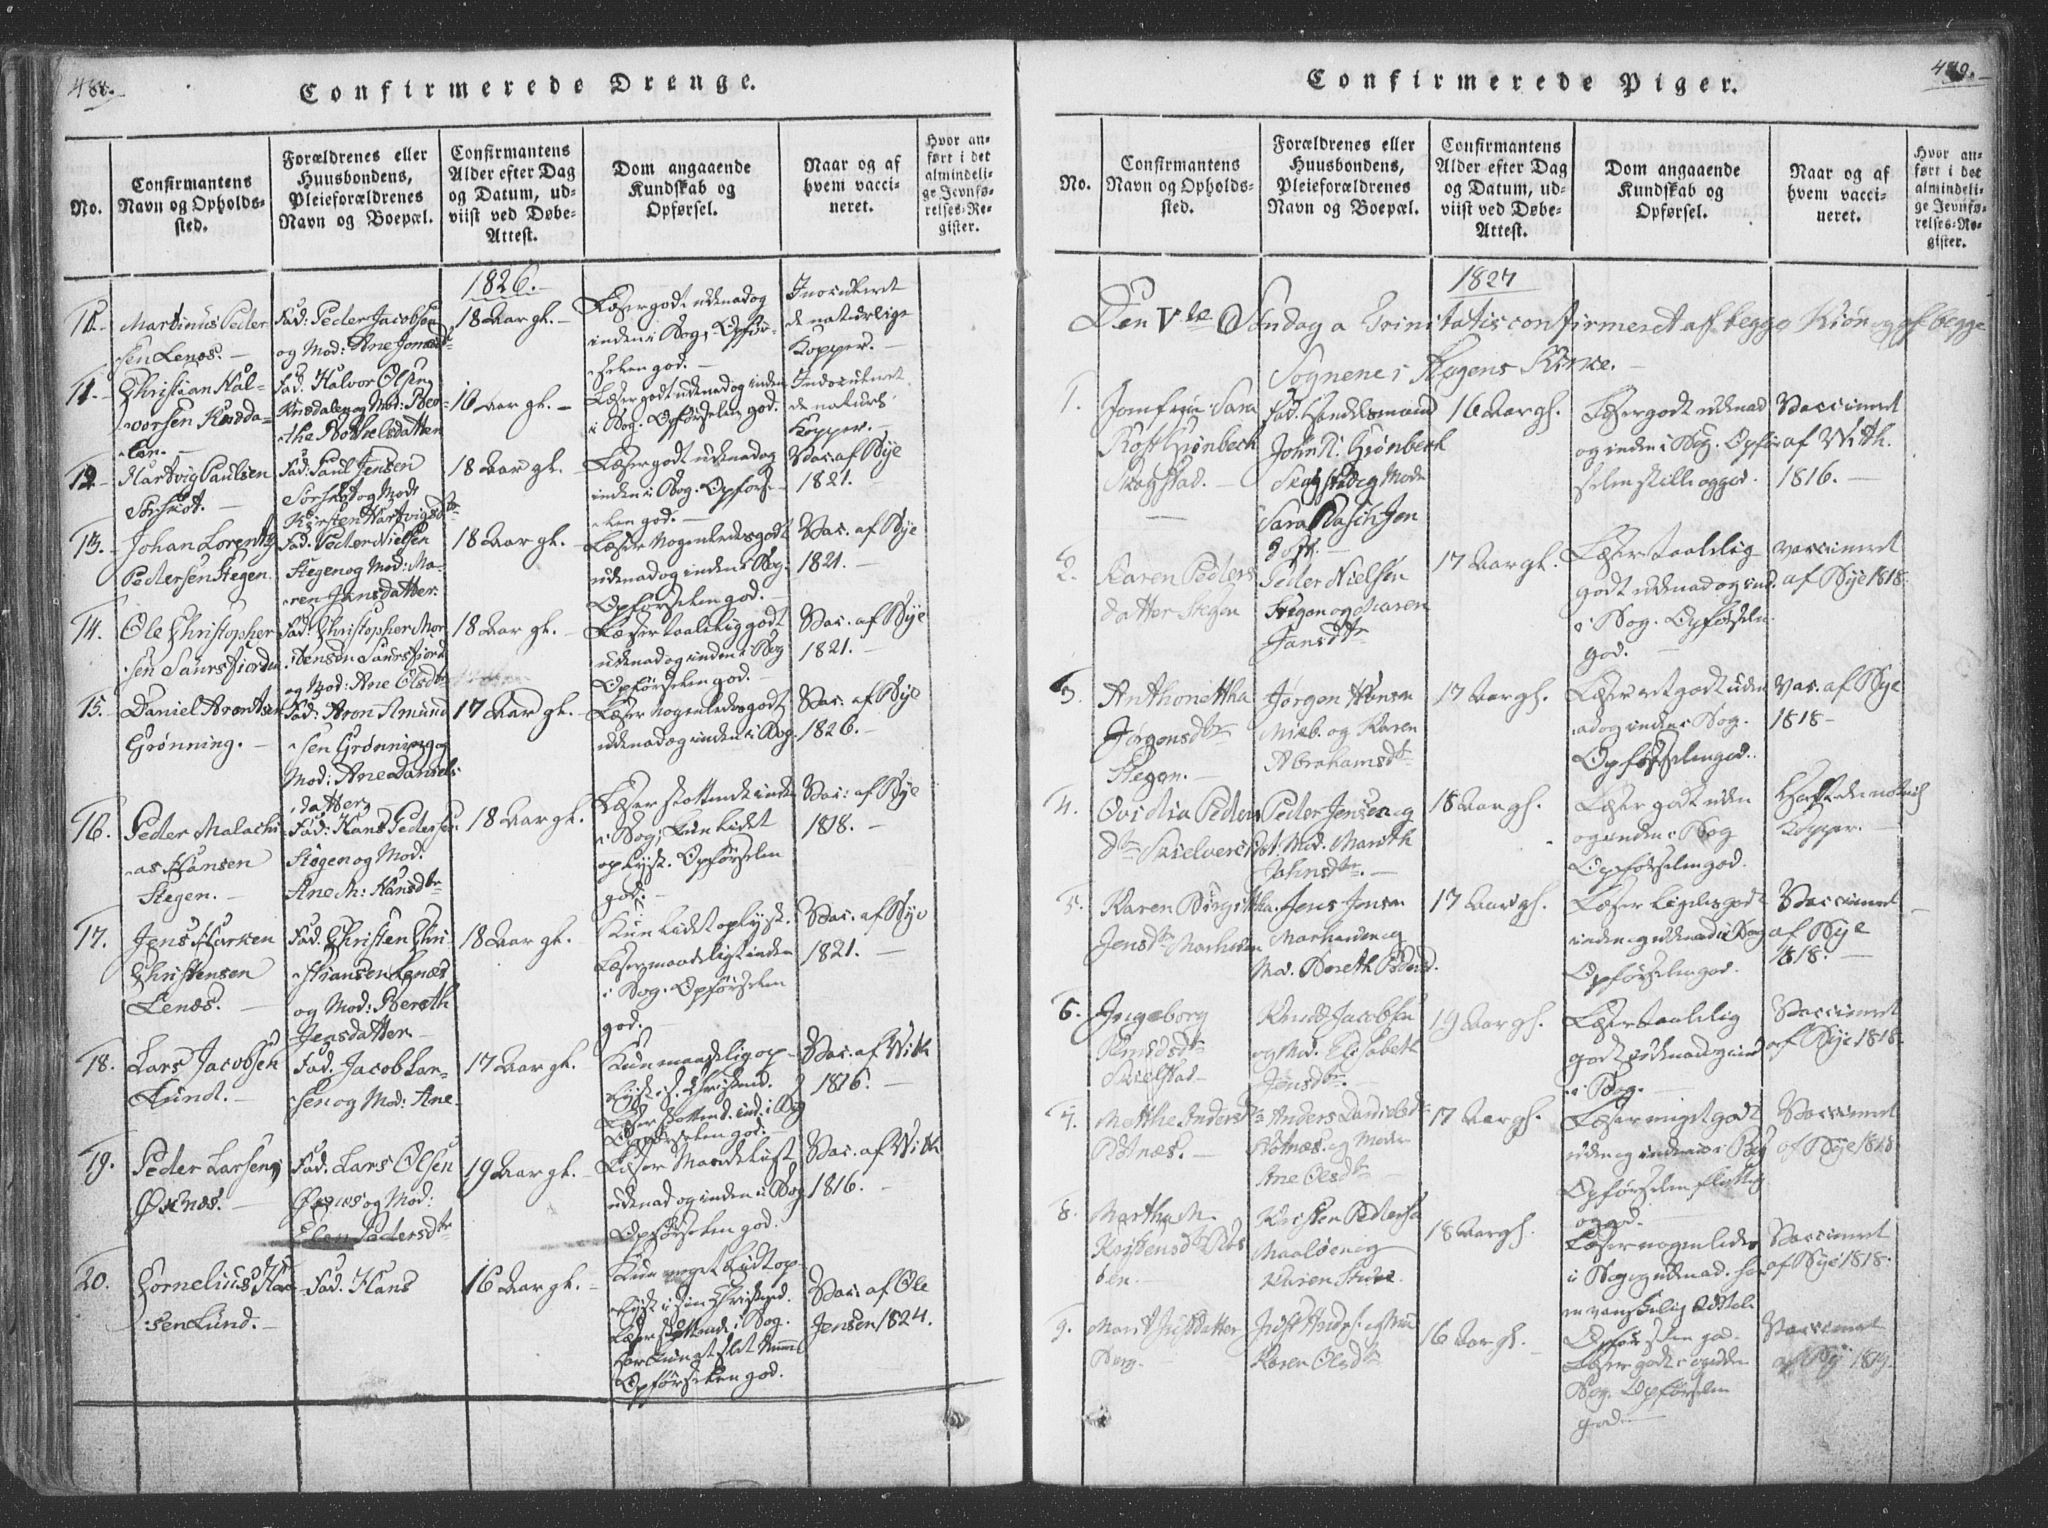 488.
Confirmerede Drenge.
No.
Confirmantens
Navn og Opholds-
sted.
Forældrenes eller
Huusbondens,
Pleieforældrenes
Navn og Boepæl.
Confirmantens
Alder efter Dag
og Datum, ud-
viist ved Døbe-
Attest.
Dom angaaende
Kundskab og
Opførsel.
Naar og af
hvem vacci-
neret.
Hvor an-
ført i det
almindeli-
ge Jevnfø-
relses-Re-
gister.
1826.
Martinus Peder
sen Lenæs.
Fad: Peder Jacobsen
og Mod: Ane
18 Aar gl.
Læser godt udenad og
inden i Bog; Opfør-
selen god.
de naturlige
Kopper.
11.
Christian Hal-
vorsen
Fad. Halvor Olsen
og Mod: Ber-
the
Læser godt udenad og inden
i Bog. Opførselen god.
Kopper.
12
Hartvig Paulsen
Fad: Paul Jensen
og Mod:
Kirsten Hartvigsdtr
18 Aar gl.
Læser godt udenad og
inden i Bog. Opførs-
elen god.
Vac. af Bye
1821.
13.
Johan Lorentz
Pedersen Stegen.
Fad. Peder Nielsen
Stegen og Mod: Ma-
ren Jansdatter.
18 Aar gl.
Læser nogenledes godt
udenad og inden i Bog.
Opførselen god.
Vac. af Bye
1821.
14.
Ole Christopher
sen Saursfjorden
Fad: Christopher Mor
tensen Saursfjord
og Mod: Ane Olsdtr
18 Aar gl.
Læser taalelig godt
udenad og inden i Bog
Opførselen god.
Vac. af Bye
1821.
15.
Daniel Arontsen
Grønning.
Fad: Aron Amund
sen Grønning og
Mod: Ane Daniels
datter
17 Aar gl.
Læser nogenledes godt
udenad og inden i Bog.
Vac: af Bye
1826.
16.
Peder Malachi
as Hansen
Stegen.
Fad: Hans Pedersen
Stegen og Mod.
Ane M: Hansdtr
18 Aar gl.
Læser stottende inden
i Bog; kun lidet
oplyst. Opførselen
god.
Vac: af Bye
1818.
17.
Jens
Christensen
Lenæs.
Fad. Christen Chri-
stiansen Lenæs
og Mod: Bereth
Jensdatter
18 Aar gl.
Kun lidt oplyst.
Læser maadeligt inden
i Bog. Opførselen
god.
Vac. af Bye
1821.
18.
Lars Jacobsen
Lund.
Fad. Jacob Lar-
sen og Mod: Ane
17 Aar gl.
Kun maadelig op-
lyst i s. Christend.
Læser stottend. ind. i Bog
Opførselen god.
Vac. af With
1816.
19.
Peder Larsen
Øxnæs.
Fad. Lars Olsen
Øxnæs og Mod:
Elen Pedersdtr
19 Aar gl.
Læser Maadeligt
udenad og inden i Bog
Opførselen god.
Vac. af With
1816.
20.
Cornelius Han
sen Lund.
Fad. Hans
16 Aar gl.
Kun meget lidt op-
lyst i sin Christend.
Læser stottende i Bog.
Har kun et slet Nemme
Opførselen god.
Vac: af Ole
Jensen 1824.
489.
Confirmerede Piger.
No.
Confirmantens
Navn og Opholds-
sted.
Forældrenes eller
Huusbondens,
Pleieforældrenes
Navn og Boepæl.
Confirmantens
Alder efter Dag
og Datum, ud-
viist ved Døbe-
Attest.
Dom angaaende
Kundskab og
Opførsel.
Naar og af
hvem vacci-
neret.
Hvor an-
ført i det
almindeli-
ge Jevnfø-
relses-Re-
gister.
1827
Den Vte Søndag a Trinitatis confirmeret af begge Kiøn og af begge
Sognene i Stegens Kirke.
1.
Jomfrue Sara
Kost Grønbech
Skogstad.
Fad. Handelsmand
John R. Grønbech
Skogstad og Moder
Sara
16 Aar gl.
Læser godt udenad
og inden i Bog. Opfør
selen stille og god.
Vaccineret
af With.
1816.
2.
Karen Peders
datter Stegen
Peder Nielsen
Stegen og Maren
Jansdtr
17 Aar gl.
Læser taalelig
godt udenad og ind.
i Bog. Opførselen
god.
vaccineret
af Bye 1818.
3.
Anthonettha
Jørgensdtr
Stegen.
Jørgen Hansen
og Karen
Abrahamsdtr
17 Aar gl.
Læser ret godt uden
ad og inden i Bog.
Opførselen god.
Vac. af Bye
1818
4.
Ovidia Peders
dtr
Peder Jensen og
Mod. Mareth
Jahnsdtr.
18 Aar gl.
Læser godt uden
og inden i Bog
Opførselen god.
Kopper.
5.
Karen Birgittha
Jensdtr
Jens Jensen
og
Mod. Bereth Pedersd.
17 Aar gl.
Læser ligeledes godt
inden og udenad i Bog
Opførselen god.
Vaccineret
af Bye
1818.
6.
Ingeborg
Knudsdtr
Skielstad
Knud Jacobsen
og Mod. Elisabeth
Jonsdtr.
19 Aar gl.
Læser taalelig
godt udenad og ind
i Bog.
Vaccineret
af Bye 1818.
7.
Metthe Andersd
Rotnæs.
Anders Danielsen
Rotnæs. og Moder
Ane Olsdtr
17 Aar gl.
Læser meget godt
uden og inden i Bog
Opførselen flittig
og god.
Vaccineret
af Bye 1818
8.
Martha M.
Kristensdtr
Kristen Pedersen
Maaløen og
18 Aar gl.
Læser nogenledes
i Bog og udenad.
Opførselen god.
Vaccineret
af Bye 1818.
9.
Marit Justdatter
Berg.
Karen Olsdtr
16 Aar gl.
Læser godt i og uden
Bog. Opførselen
god
Vaccineret
af Bye 1819.